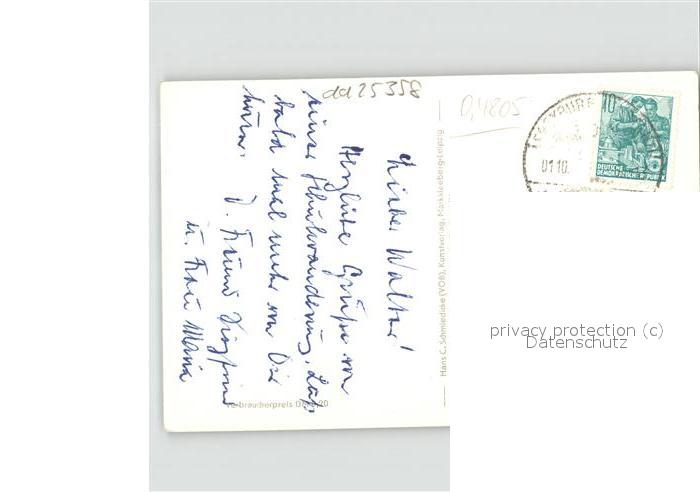 dd25358
0,4805
Lieber Walter!
Herzliche Grüße von
einer Schulwanderung. Laß
bald mal mehr von Dir
hören.
D. Freund Siegfried
u. Frau Maria
Verbraucherpreis DM 0,20
Hans C. Schmiedicke (VOB), Kunstverlag, Markkleeberg-Leipzig
01 10
10
DEUTSCHE
DEMOKRATISCHE REPUBLIK
privacy protection (c)
Datenschutz